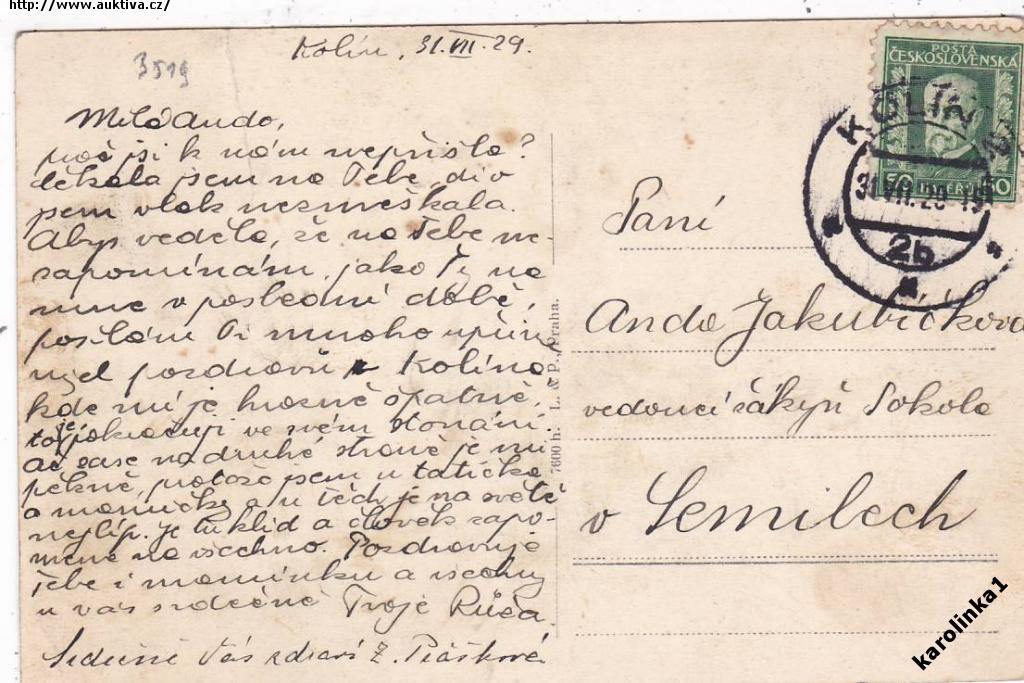 http://www.auktiva.cz/
Kolín, 31.VII.29.
3519
Milá Ando,
proč jsi k nám nepřišla?
čekala jsem na Tebe, div
jsem vlak nezmeškala.
Abys věděla, že na Tebe ne-
zapomínám, jako Ty na
mne v poslední době,
posílám Ti mnoho upřím
pozdravů z Kolína
kde mi je hrozně špatně,
to je pokračuji ve svém stonání.
Ač zase na druhé straně je mi
pěkně, protože jsem u tatíčka
a mamičky a u těch je na světě
nejlíp. Je tu klid a člověk zapo-
mene na všechno. Pozdravuje
Tebe i maminku a všechny
u vás srdečně Tvoje Růža.
Srdečně Vás zdraví Z. Piášková
7600 h. L. & P., Praha.
POŠTA
ČESKOSLOVENSKÁ
50 HALÉŘŮ 50
KOLÍN
31.VII.29-19
2b
Paní
Anda Jakubíčková
vedoucí žákyň Sokola
v Semilech
karolinka1